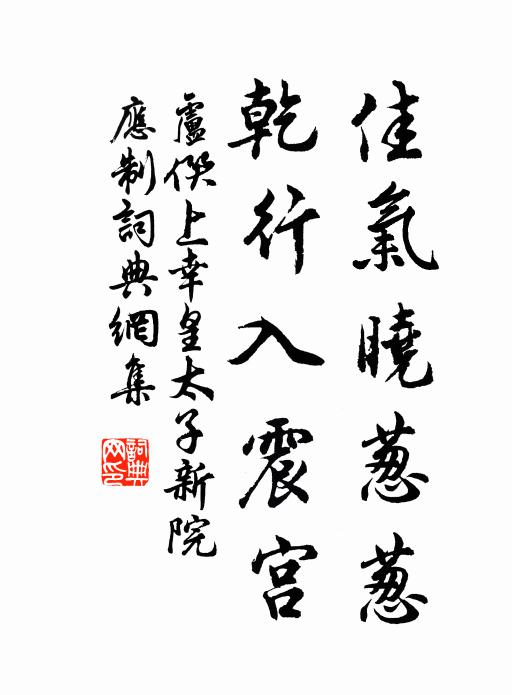 佳氣曉葱葱
乾行入震宮
盧僎上幸皇太子新院
應制詞典網集
詞典
网印